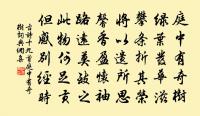 庭中有奇樹
綠葉發華滋
攀條折其榮
將以遺所思
馨香盈懷袖
路遠莫致之
此物何足貢
但感別經時
古詩十九首庭中有奇
樹詞典網集